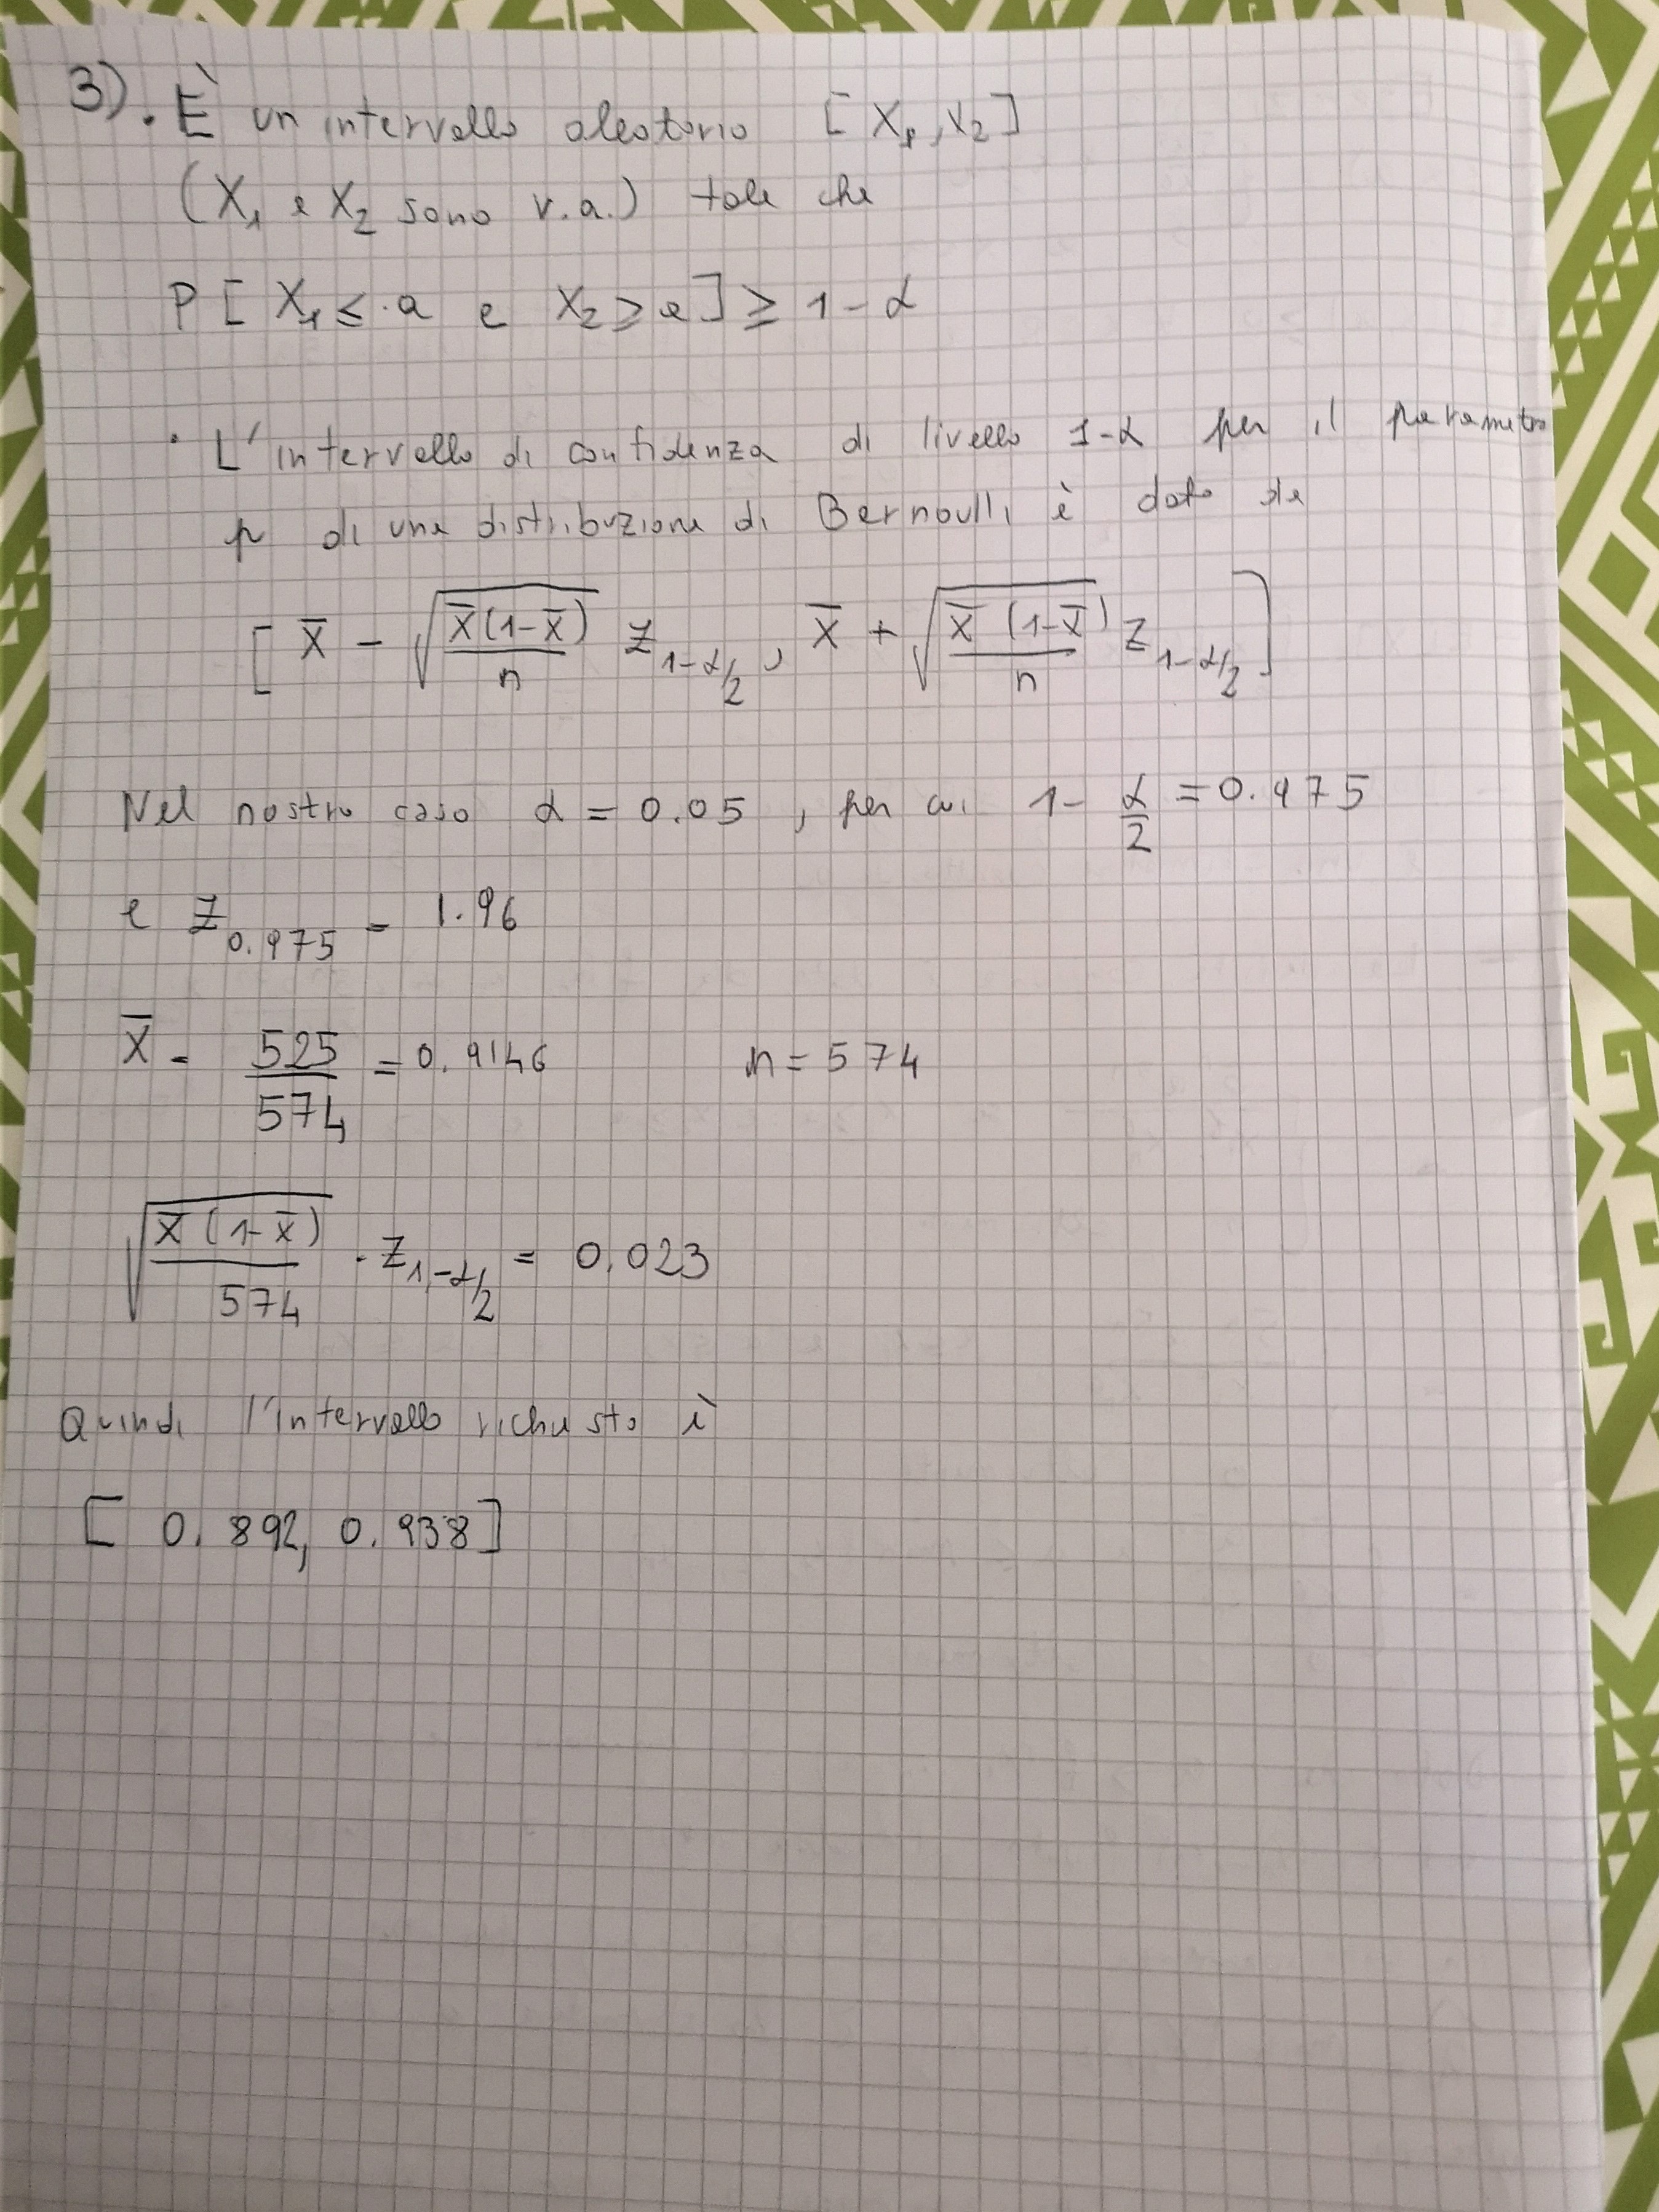 3). È un intervallo aleatorio [X₁, X₂]
(X₁ e X₂ sono v.a.) tale che
P[X₁ ≤ a e X₂ ≥ a] ≥ 1-α
• L'intervallo di confidenza di livello 1-α per il parametro
p di una distribuzione di Bernoulli è dato da
[X̄ - √(X̄(1-X̄)/n) Z_{1-α/2}, X̄ + √(X̄(1-X̄)/n) Z_{1-α/2}]
Nel nostro caso α = 0.05, per cui 1-α/2 = 0.975
e Z_{0.975} = 1.96
X̄ = 525/574 = 0.9146 n = 574
√(X̄(1-X̄)/574) · Z_{1-α/2} = 0.023
Quindi l'intervallo richiesto è
[0.892, 0.938]